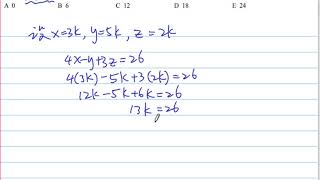 A 0 B 6 C 12 D 18 E 24
设 x=3k, y=5k, z=2k
4x-y+3z=26
4(3k)-5k+3(2k)=26
12k-5k+6k=26
13k=26